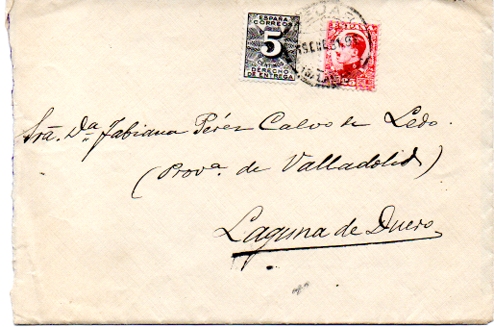 ESPAÑA
CORREOS
5
DERECHO
DE ENTREGA
ESPAÑA
25
Sra. Dª Fabiana Pérez Calvo de Ledo.
(Provª de Valladolid)
Laguna de Duero.